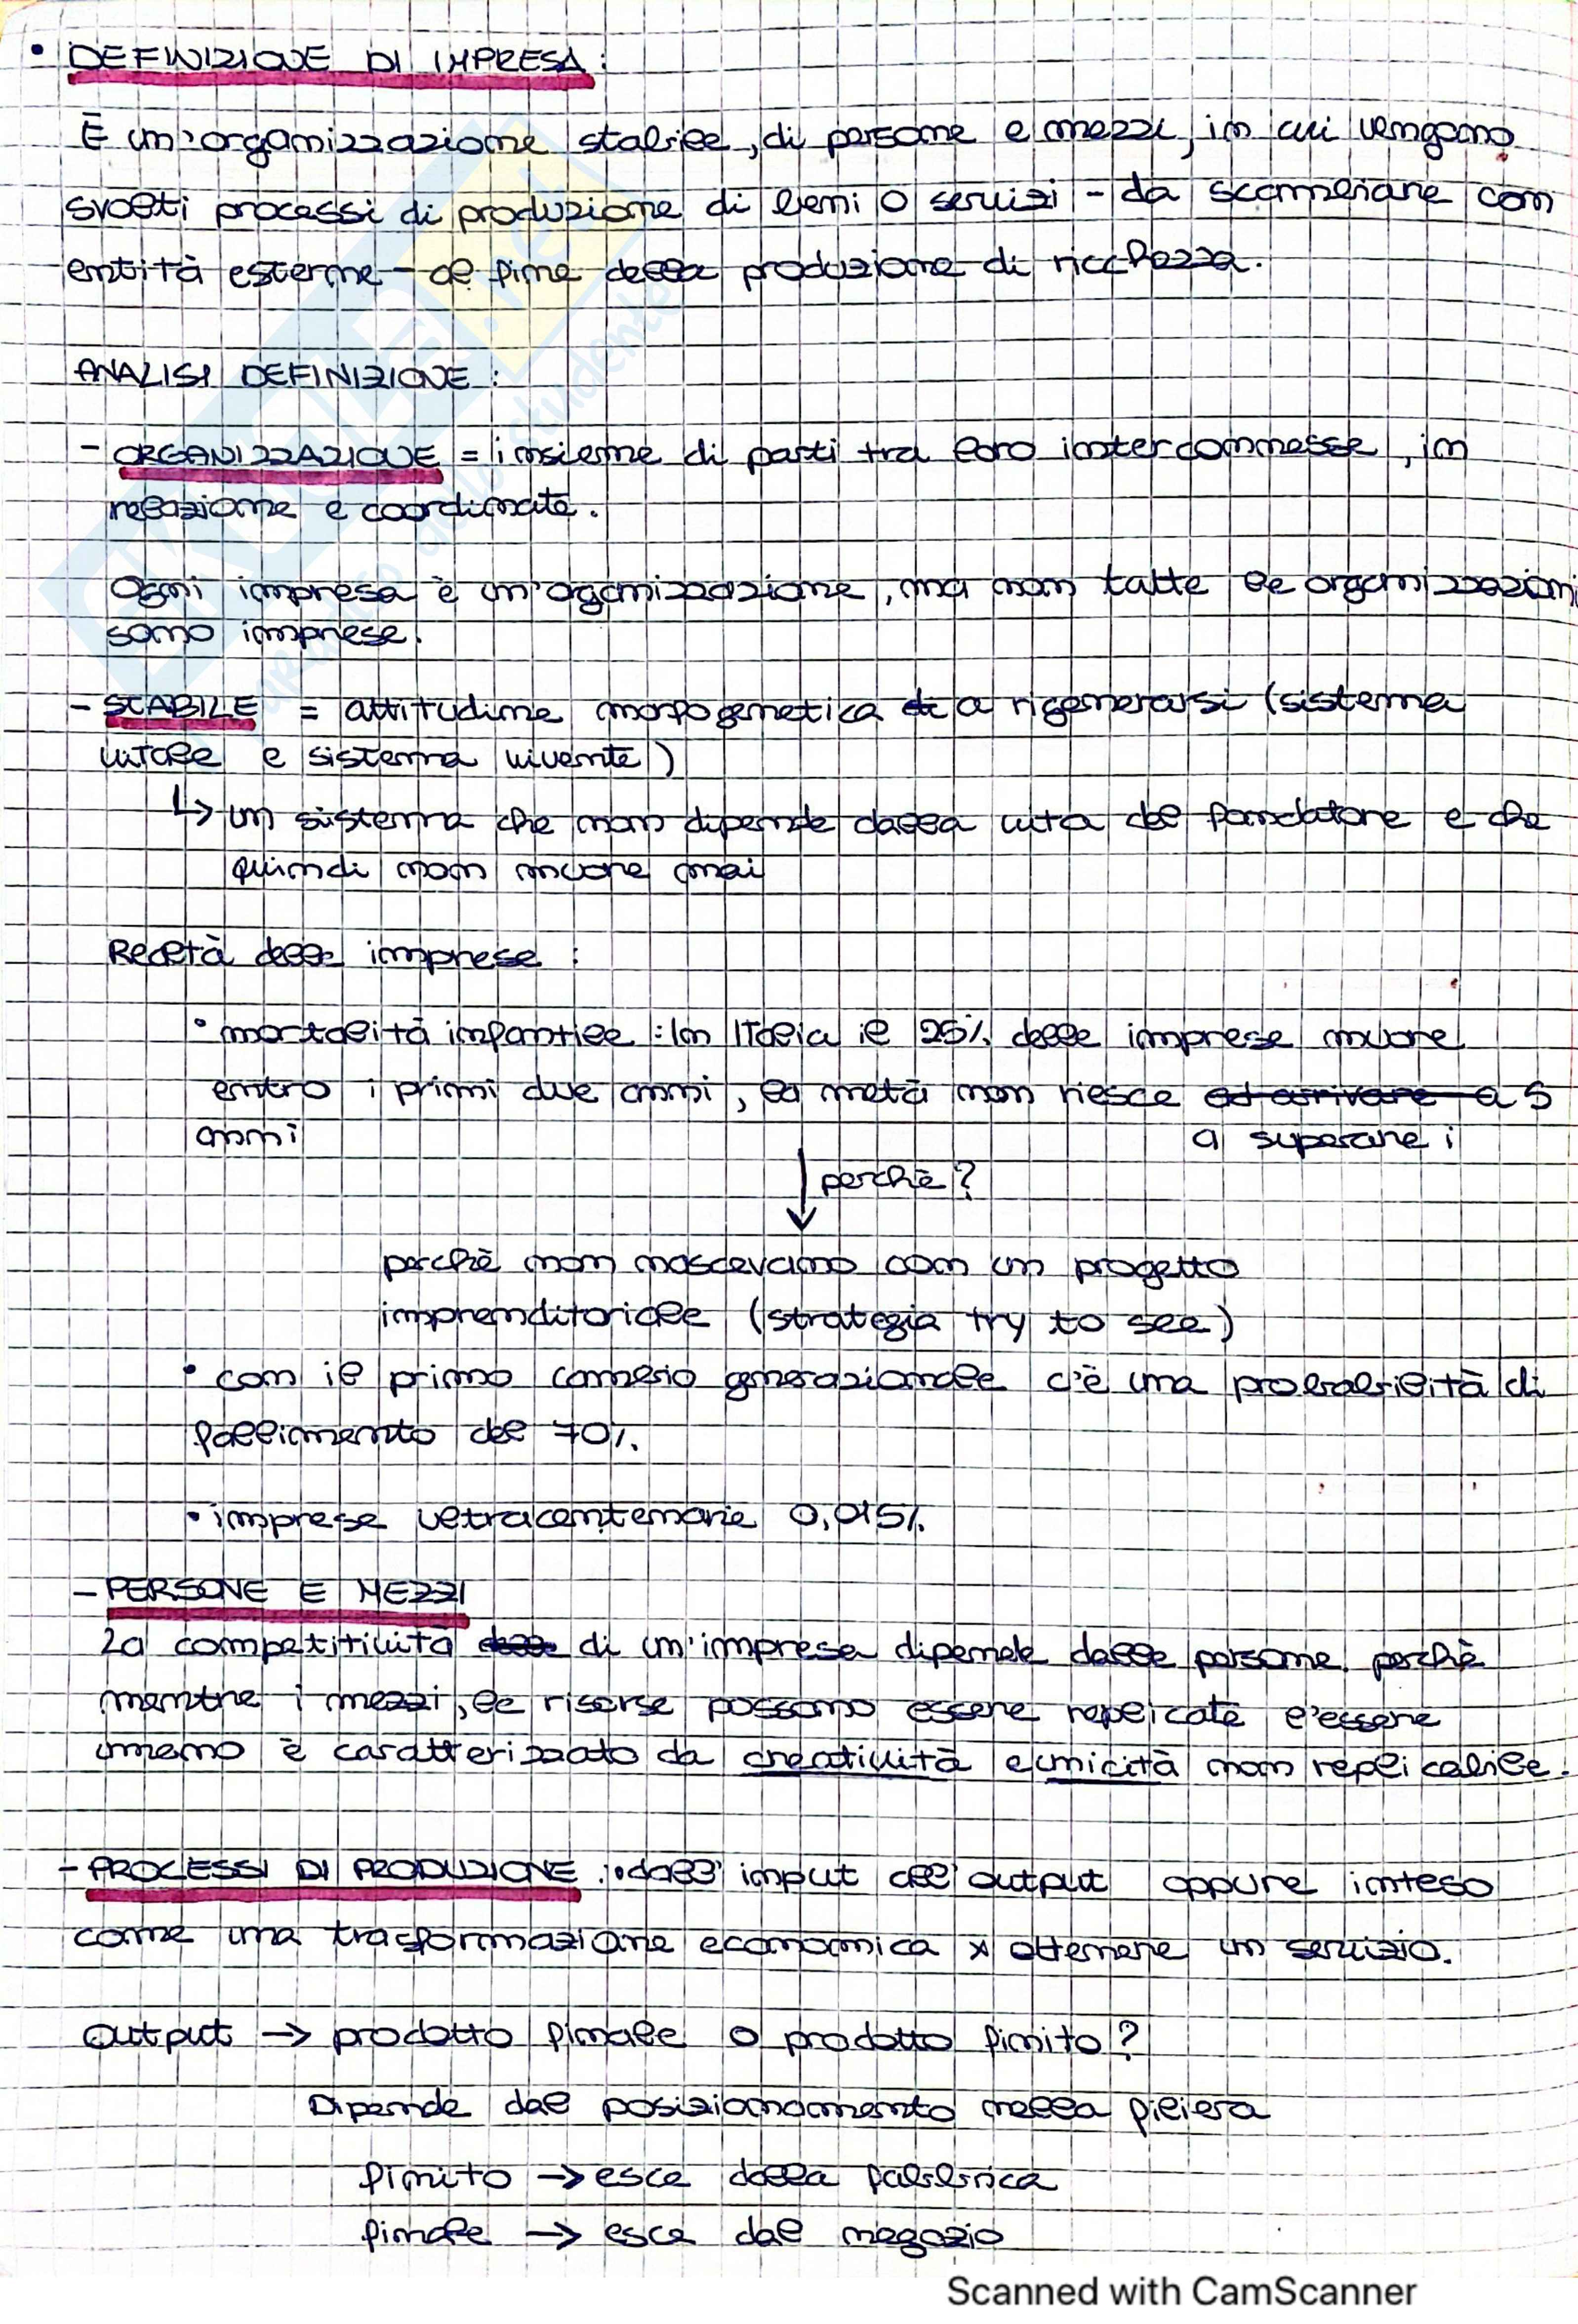 • DEFINIZIONE DI IMPRESA:
È un'organizzazione stabile, di persone e mezzi, in cui vengono
svolti processi di produzione di beni o servizi - da scambiare con
entità esterne - al fine della produzione di ricchezza.
ANALISI DEFINIZIONE:
- ORGANIZZAZIONE = insieme di parti tra loro interconnesse, in
relazione e coordinate.
Ogni impresa è un'oganizzazione, ma non tutte le organizzazioni
sono imprese.
- STABILE = attitudine morfogenetica di a rigenerarsi (sistema
vitale e sistema vivente)
↳ un sistema che non dipende dalla vita del fondatore e che
quindi non muore mai
Realtà delle imprese:
• mortalità infantile: In Italia il 25% delle imprese muore
entro i primi due anni, la metà non riesce ad arrivare a 5
anni a superare i
↓ perchè?
perchè non nascevano con un progetto
imprenditoriale (strategia try to see)
• con il primo cambio generazionale c'è una probabilità di
fallimento del 70%.
• imprese ultracentenarie 0,015%.
- PERSONE E MEZZI
La competitività delle di un'impresa dipende dalle persone perchè
mentre i mezzi, le risorse possono essere replicate l'essere
umano è caratterizzato da creatività e unicità non replicabile.
- PROCESSI DI PRODUZIONE: dall'imput all'output oppure inteso
come una trasformazione economica x ottenere un servizio.
Output → prodotto finale o prodotto finito?
Dipende dal posizionamento nella filiera
finito → esce dalla fabbrica
finale → esce dal negozio
Scanned with CamScanner